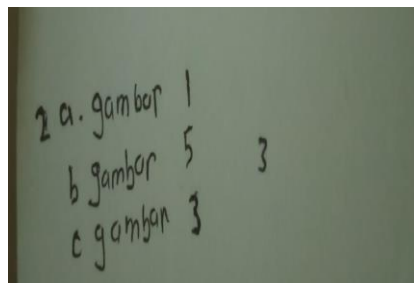 2 a. gambar 1
b gambar 5 3
c gambar 3